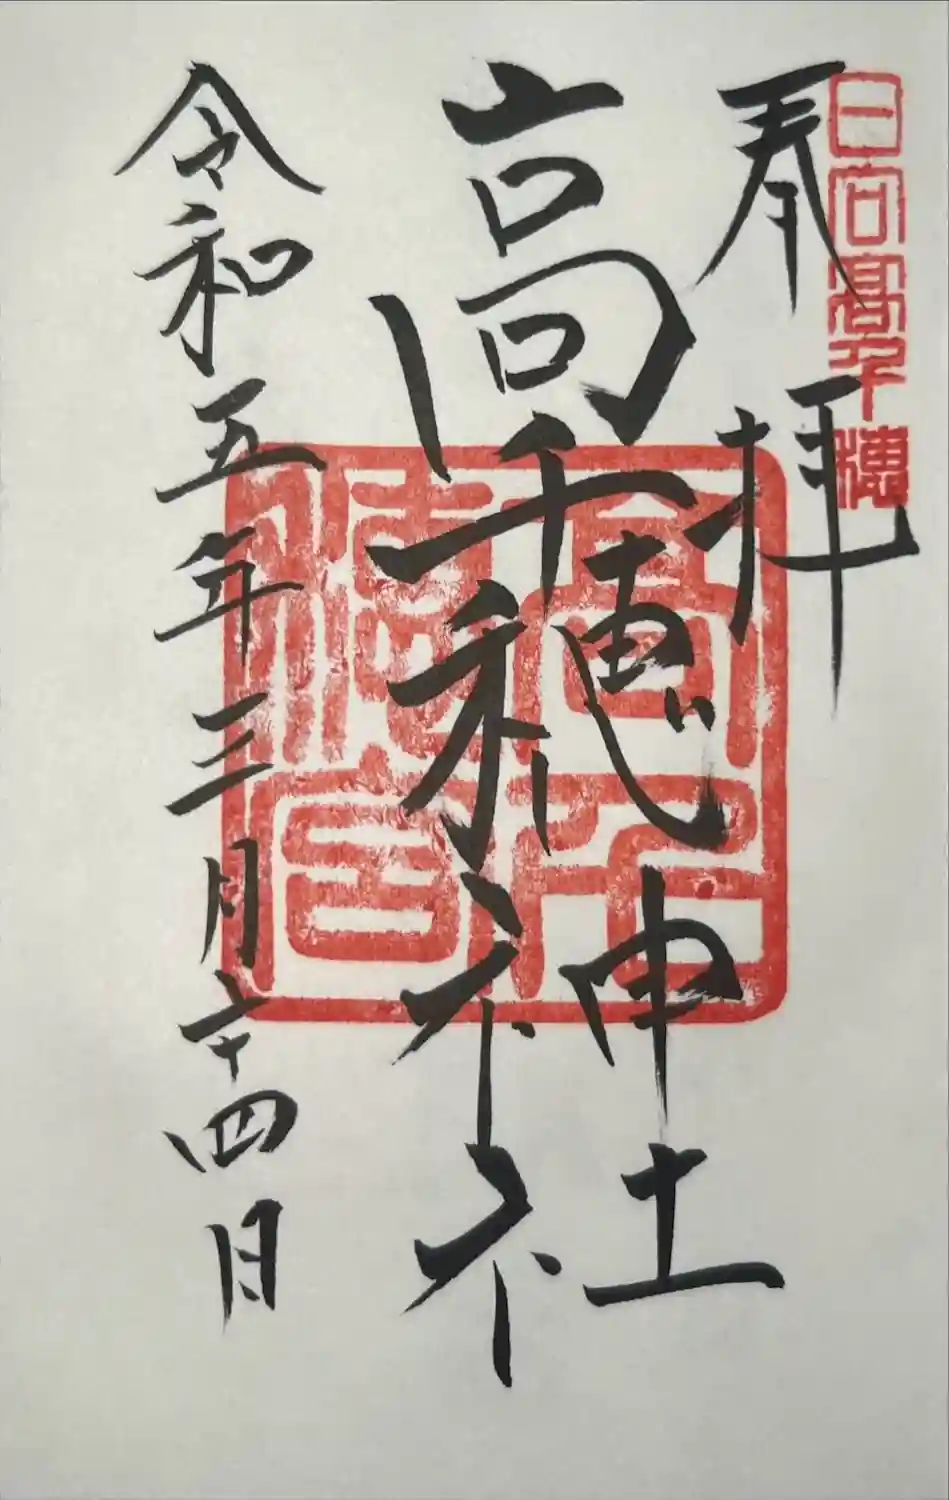 日向高千穂
奉拝
高千穂神社
高千穂宮
令和五年三月十四日